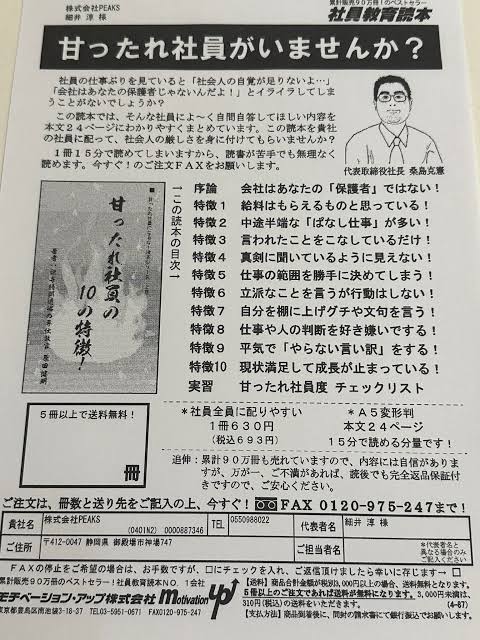 株式会社PEAKS
細井 淳 様
累計販売90万冊!のベストセラー
社員教育読本
甘ったれ社員がいませんか?
社員の仕事ぶりを見ていると「社会人の自覚が足りないよ…」
「会社はあなたの保護者じゃないんだよ!」とイライラしてしま
うことがないでしょうか?
この読本では、そんな社員によ~く自問自答してほしい内容を
本文24ページにわかりやすくまとめています。この読本を貴社
の社員に配って、社会人の厳しさを身に付けてもらいませんか?
1冊15分で読めてしまいますから、読書が苦手でも無理なく
読めます。今すぐ!のご注文FAXをお願いします。
代表取締役社長 桑島克憲
甘ったれ社員の
10の特徴!
→この読本の目次→
序論 会社はあなたの「保護者」ではない!
特徴1 給料はもらえるものと思っている!
特徴2 中途半端な「ぱなし仕事」が多い!
特徴3 言われたことをこなしているだけ!
特徴4 真剣に聞いているように見えない!
特徴5 仕事の範囲を勝手に決めてしまう!
特徴6 立派なことを言うが行動はしない!
特徴7 自分を棚に上げグチや文句を言う!
特徴8 仕事や人の判断を好き嫌いでする!
特徴9 平気で「やらない言い訳」をする!
特徴10 現状満足して成長が止まっている!
実習 甘ったれ社員度 チェックリスト
5冊以上で送料無料!
冊
*社員全員に配りやすい
1冊630円
(税込693円)
*A5変形判
本文24ページ
15分で読める分量です!
追伸:累計90万冊も売れていますので、内容には自信があり
ますが、万が一、ご不満があれば、読後でも完全返品保証付
きですので、ご安心ください。
ご注文は、冊数と送り先をご記入の上、今すぐ! FAX 0120-975-247まで!
貴社名 株式会社PEAKS
(0401N2) 0000887346
TEL 0550988022
代表者名 細井 淳 様
ご住所 〒412-0047 静岡県 御殿場市神場747
ご担当者名
*代表者名と
異なる場合のみ
ご記入ください
FAXの停止をご希望の場合は、お手数ですが、□にチェックを入れ、ご返信頂けましたら幸いに存じます→□
累計販売90万冊のベストセラー!社員教育読本NO.1会社
モチベーション・アップ株式会社 motivation up
東京都豊島区南池袋3-18-37 TEL03-5951-0671 FAX0120-975-247
【送料】商品合計金額が税別3,000円以上の場合、送料無料となります。
5冊以上のご注文であれば送料が無料になります。3,000円未満は、
310円(税込)の送料をいただきます。 (4-87)
【支払方法】商品到着後に、同封の請求書にて銀行振込でお願いします。